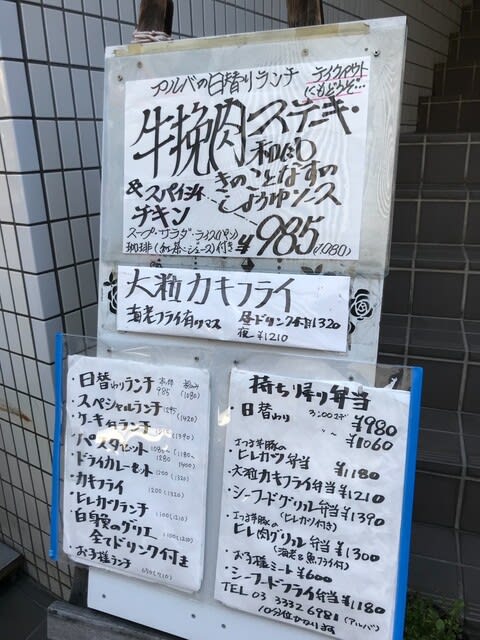 アルバの日替りランチ
テイクアウト
にもどうぞ…
牛挽肉ステーキ・
和风
きのことなすの
しょうゆソース
& スパイシィ
チキン
スープ・サラダ・ライス(パン)
珈琲(紅茶・ジュース)付き
¥985(1080)
大粒カキフライ
海老フライ有りマス
昼ドリンク付¥1320
夜 ¥1210
・日替わりランチ 985 (1080)
・スペシャルランチ 1295 (1420)
・ケーキ付ランチ (1390)
・パスタセット 1080~ (1180~
1280 1400)
・ドライカレーセット 1200 (1320)
・カキフライ 1200 (1320)
・ヒレカツランチ 1100 (1210)
・白身魚のグリエ 1100 (1210)
全てドリンク付き
お子様ランチ
持ち帰り弁当
・日替わり ¥980
¥1060
・ヒレカツ弁当 ¥1180
・大粒カキフライ弁当 ¥1210
・シーフードグリル弁当 ¥1390
(ヒレカツ付き)
・ヒレ肉グリル弁当 ¥1300
(海老&魚フライ付)
・お子様ミート ¥600
・シーフードフライ弁当 ¥1180
TEL 03 3332 6981 (アルバ)
10分位かかります